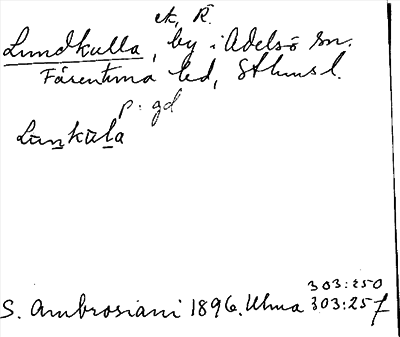 ek, R.
Lundkulla, by i Adelsö sn.
Färentuna hd, Sthlmsl.
p. gd
Lunkula
303:250
S. Ambrosiani 1896. Ulma 303:257